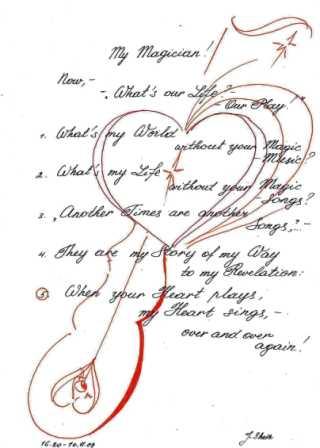 My Magician!
Now,-
-„What's our Life?"
-„Our Play."
1. What's my World
without your Magic
-Music?
2. What's my Life
without your Magic
-Songs?
3. „Another Times are another
Songs,"...-
4. They are my Story of my Way
to my Revelation:
5. When your Heart plays,
my Heart sings, -
over and over
again!